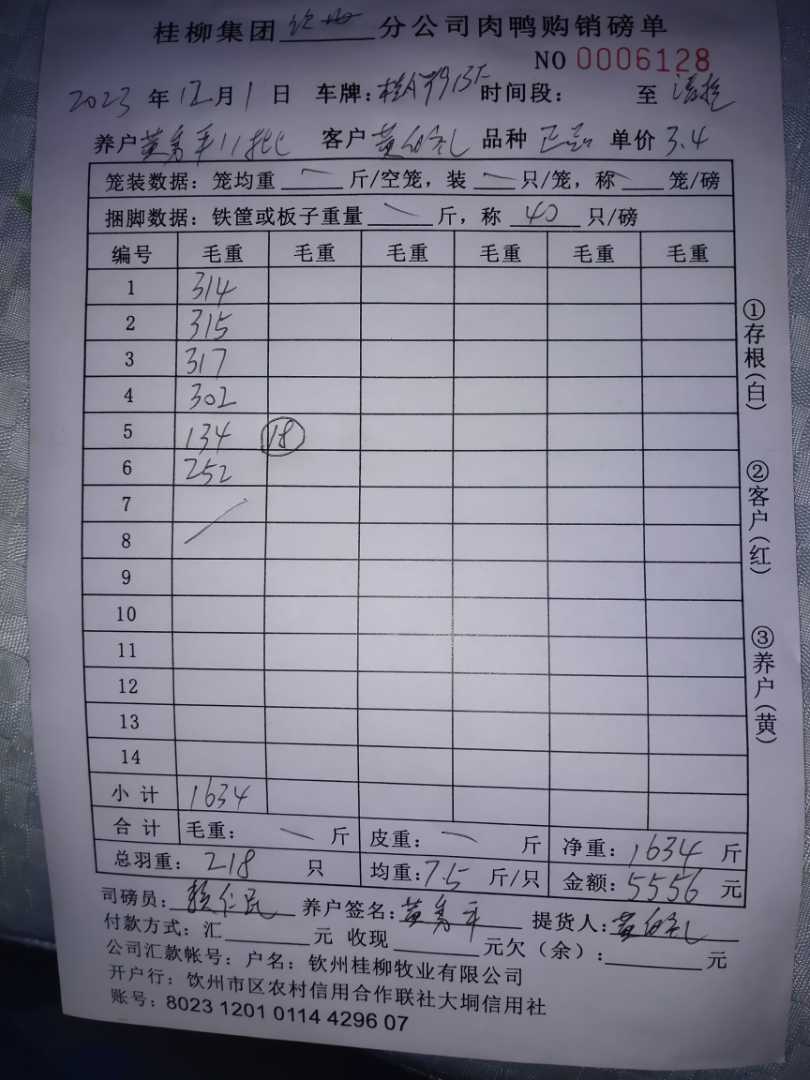 桂柳集团 分公司肉鸭购销磅单
NO 0006128
2023 年 12 月 1 日 车牌: 时间段: 至
养户 黄秀平11批 客户 品种 正品 单价 3.4
笼装数据: 笼均重 斤/空笼, 装 只/笼, 称 笼/磅
捆脚数据: 铁筐或板子重量 斤, 称 40 只/磅
编号 毛重 毛重 毛重 毛重 毛重 毛重
1 314
2 315
3 317
4 302
5 134 18
6 252
7
8
9
10
11
12
13
14
小计 1634
合计 毛重: 斤 皮重: 斤 净重: 1634 斤
总羽重: 218 只 均重: 7.5 斤/只 金额: 5556 元
司磅员: 养户签名: 黄秀平 提货人:
付款方式: 汇 元 收现 元欠(余): 元
公司汇款帐号: 户名: 钦州桂柳牧业有限公司
开户行: 饮州市区农村信用合作联社大垌信用社
账号: 8023 1201 0114 4296 07
①存根(白)
②客户(红)
③养户(黄)